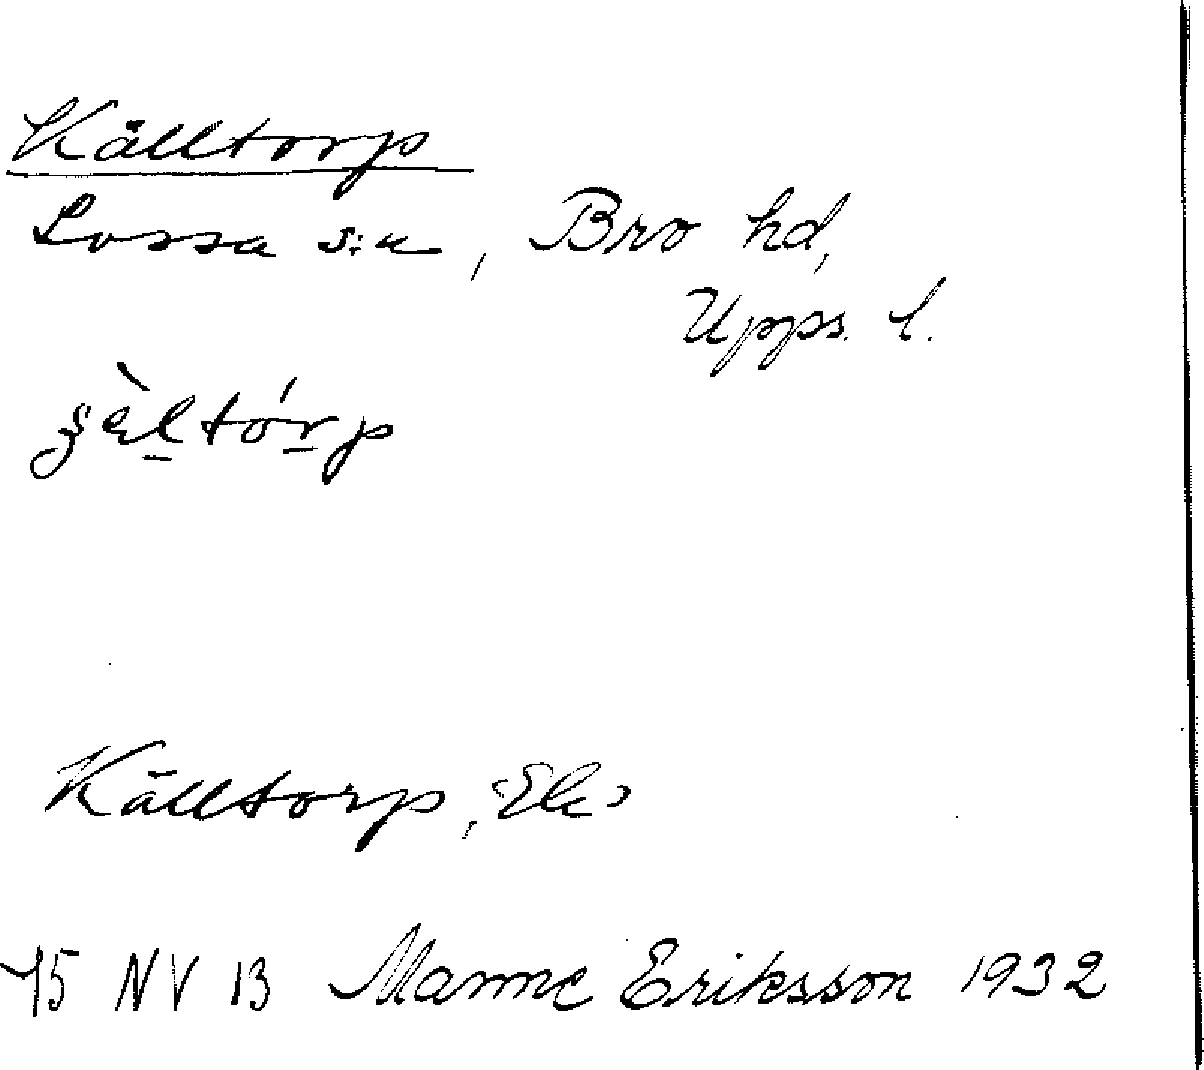 Källtorp
Lossa s:n, Bro hd,
Upps. l.
Källtorp, Ek.
75 NV 13 Manne Eriksson 1932